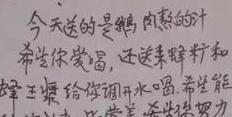 今天送的是鹅肉熬的汁
希望你爱喝,还送来蜂籽和
蜂王浆给你调开水喝.希望能